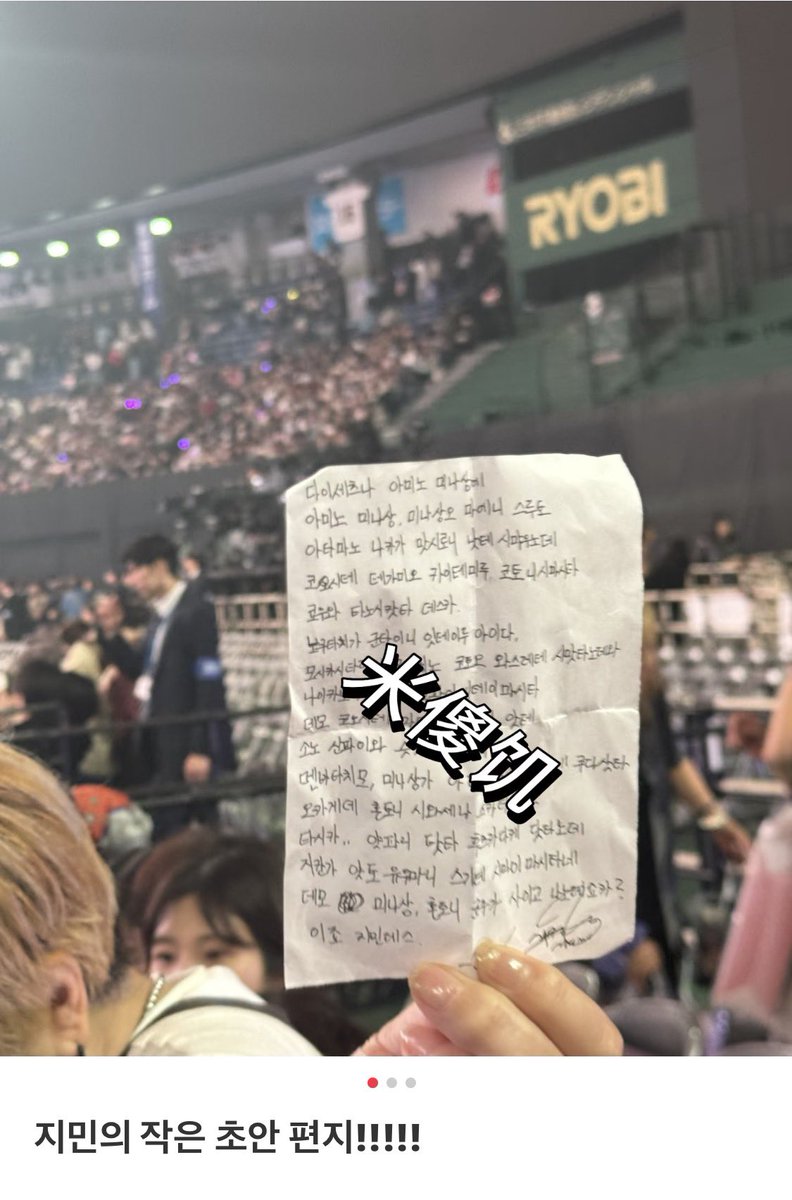 RYOBI
다이세츠나 아미노 미나상에
아미노 미나상, 미나상오 마에니 스루토
아타마노 나카가 맛시로니 낫테 시마우노데
코오시테 테가미오 카이테미루 코토니시마시타
쿄우와 타노시캇타 데스카.
보쿠타치가 군타이니 잇테이루 아이다,
모시카시타 코토모 와스레테 시맛타노데와
나이카 데이마시타
데모 코오시테 앗테
소노 신파이와 쿠다삿타
멘바타치모, 미나상가
오카게데 혼토니 시아세나
타시카.. 얏파리 닷타 닷타노데
지칸가 앗토-유우마니 스기테 시마이마시타네
데모 미나상, 혼토니 사이고 나노데쇼카?
이죠 지민데스.
米傻饥
지민의 작은 초안 편지!!!!!